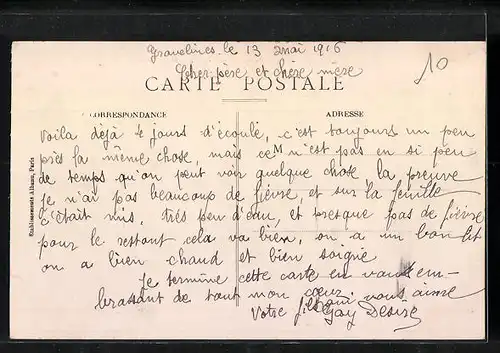 Gravelines. le 13 mai 1916
10
Cher père et chère mère
CARTE POSTALE
CORRESPONDANCE
ADRESSE
Voila déjà 4 jours d'écoulé, c'est toujours un peu
près la même chose, mais ce M n'est pas en si peu
de temps qu'on peut voir quelque chose la preuve
je n'ai pas beaucoup de fièvre, et sur la feuille
c'était mis, très peu d'eau, et presque pas de fièvre
pour le restant cela va bien, on a un bon lit
on a bien chaud et bien soigné
je termine cette carte en vous em-
brassant de tout mon cœur.
Votre fils qui vous aime
Gay Désiré
Établissements Alband, Paris